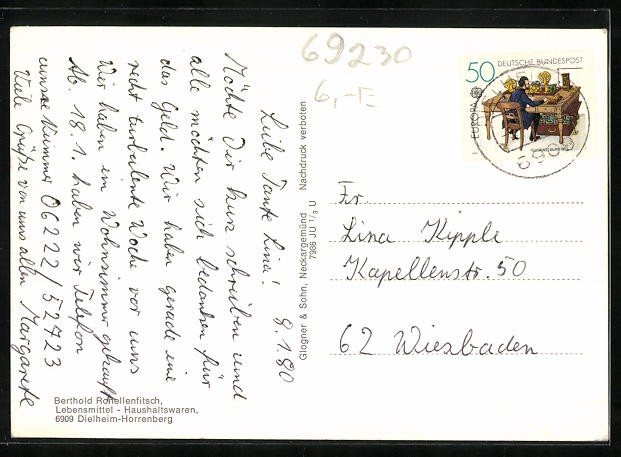 69230
6,-E
50 DEUTSCHE BUNDESPOST
EUROPA
6909
8.1.80
Liebe Tante Lina!
Möchte Dir kurz schreiben und
alle möchten sich bedanken für
das Geld. Wir haben gerade eine
recht turbulente Woche vor uns
Wir haben ein Wohnzimmer gekauft
Ab. 18.1. haben wir Telefon
unsre Nummer 06222/52723
Viele Grüße von uns allen Margarete
Glogner & Sohn, Neckargemünd Nachdruck verboten
7986 JU 1/3 U
Fr.
Lina Kipple
Kapellenstr. 50
62 Wiesbaden
Berthold Ronellenfitsch,
Lebensmittel - Haushaltswaren,
6909 Dielheim-Horrenberg